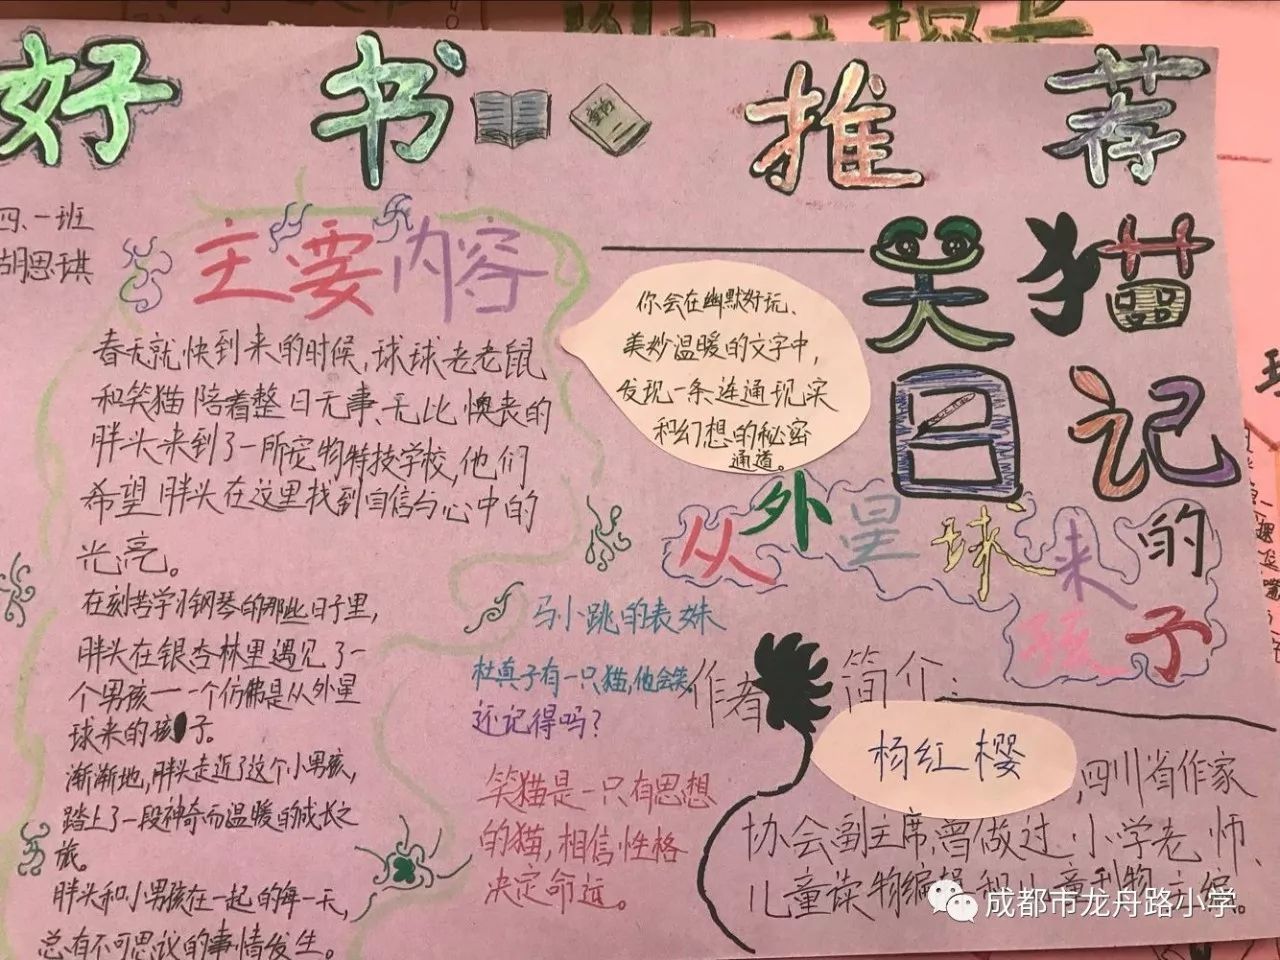 好书推荐
童书
四.一班
胡思琪
主要内容
春天就快到来的时候,球球老老鼠
和笑猫陪着整日无事、无比懊丧的
胖头来到了一所宠物特技学校,他们
希望胖头在这里找到自信与心中的
光亮。
在刻苦学习钢琴的那些日子里,
胖头在银杏林里遇见了一
个男孩——一个仿佛是从外星
球来的孩子。
渐渐地,胖头走近了这个小男孩,
踏上了一段神奇而温暖的成长之
旅。
胖头和小男孩在一起的每一天,
总有不可思议的事情发生。
你会在幽默好玩、
美妙温暖的文字中,
发现一条连通现实
和幻想的秘密
通道。
笑猫
日记
从外星球来的
孩子
马小跳的表妹
杜真子有一只猫,他会笑,
还记得吗?
笑猫是一只有思想
的猫,相信性格
决定命运。
作者简介:
杨红樱
,四川省作家
协会副主席,曾做过小学老师、
儿童读物编辑和儿童刊物主编。
成都市龙舟路小学